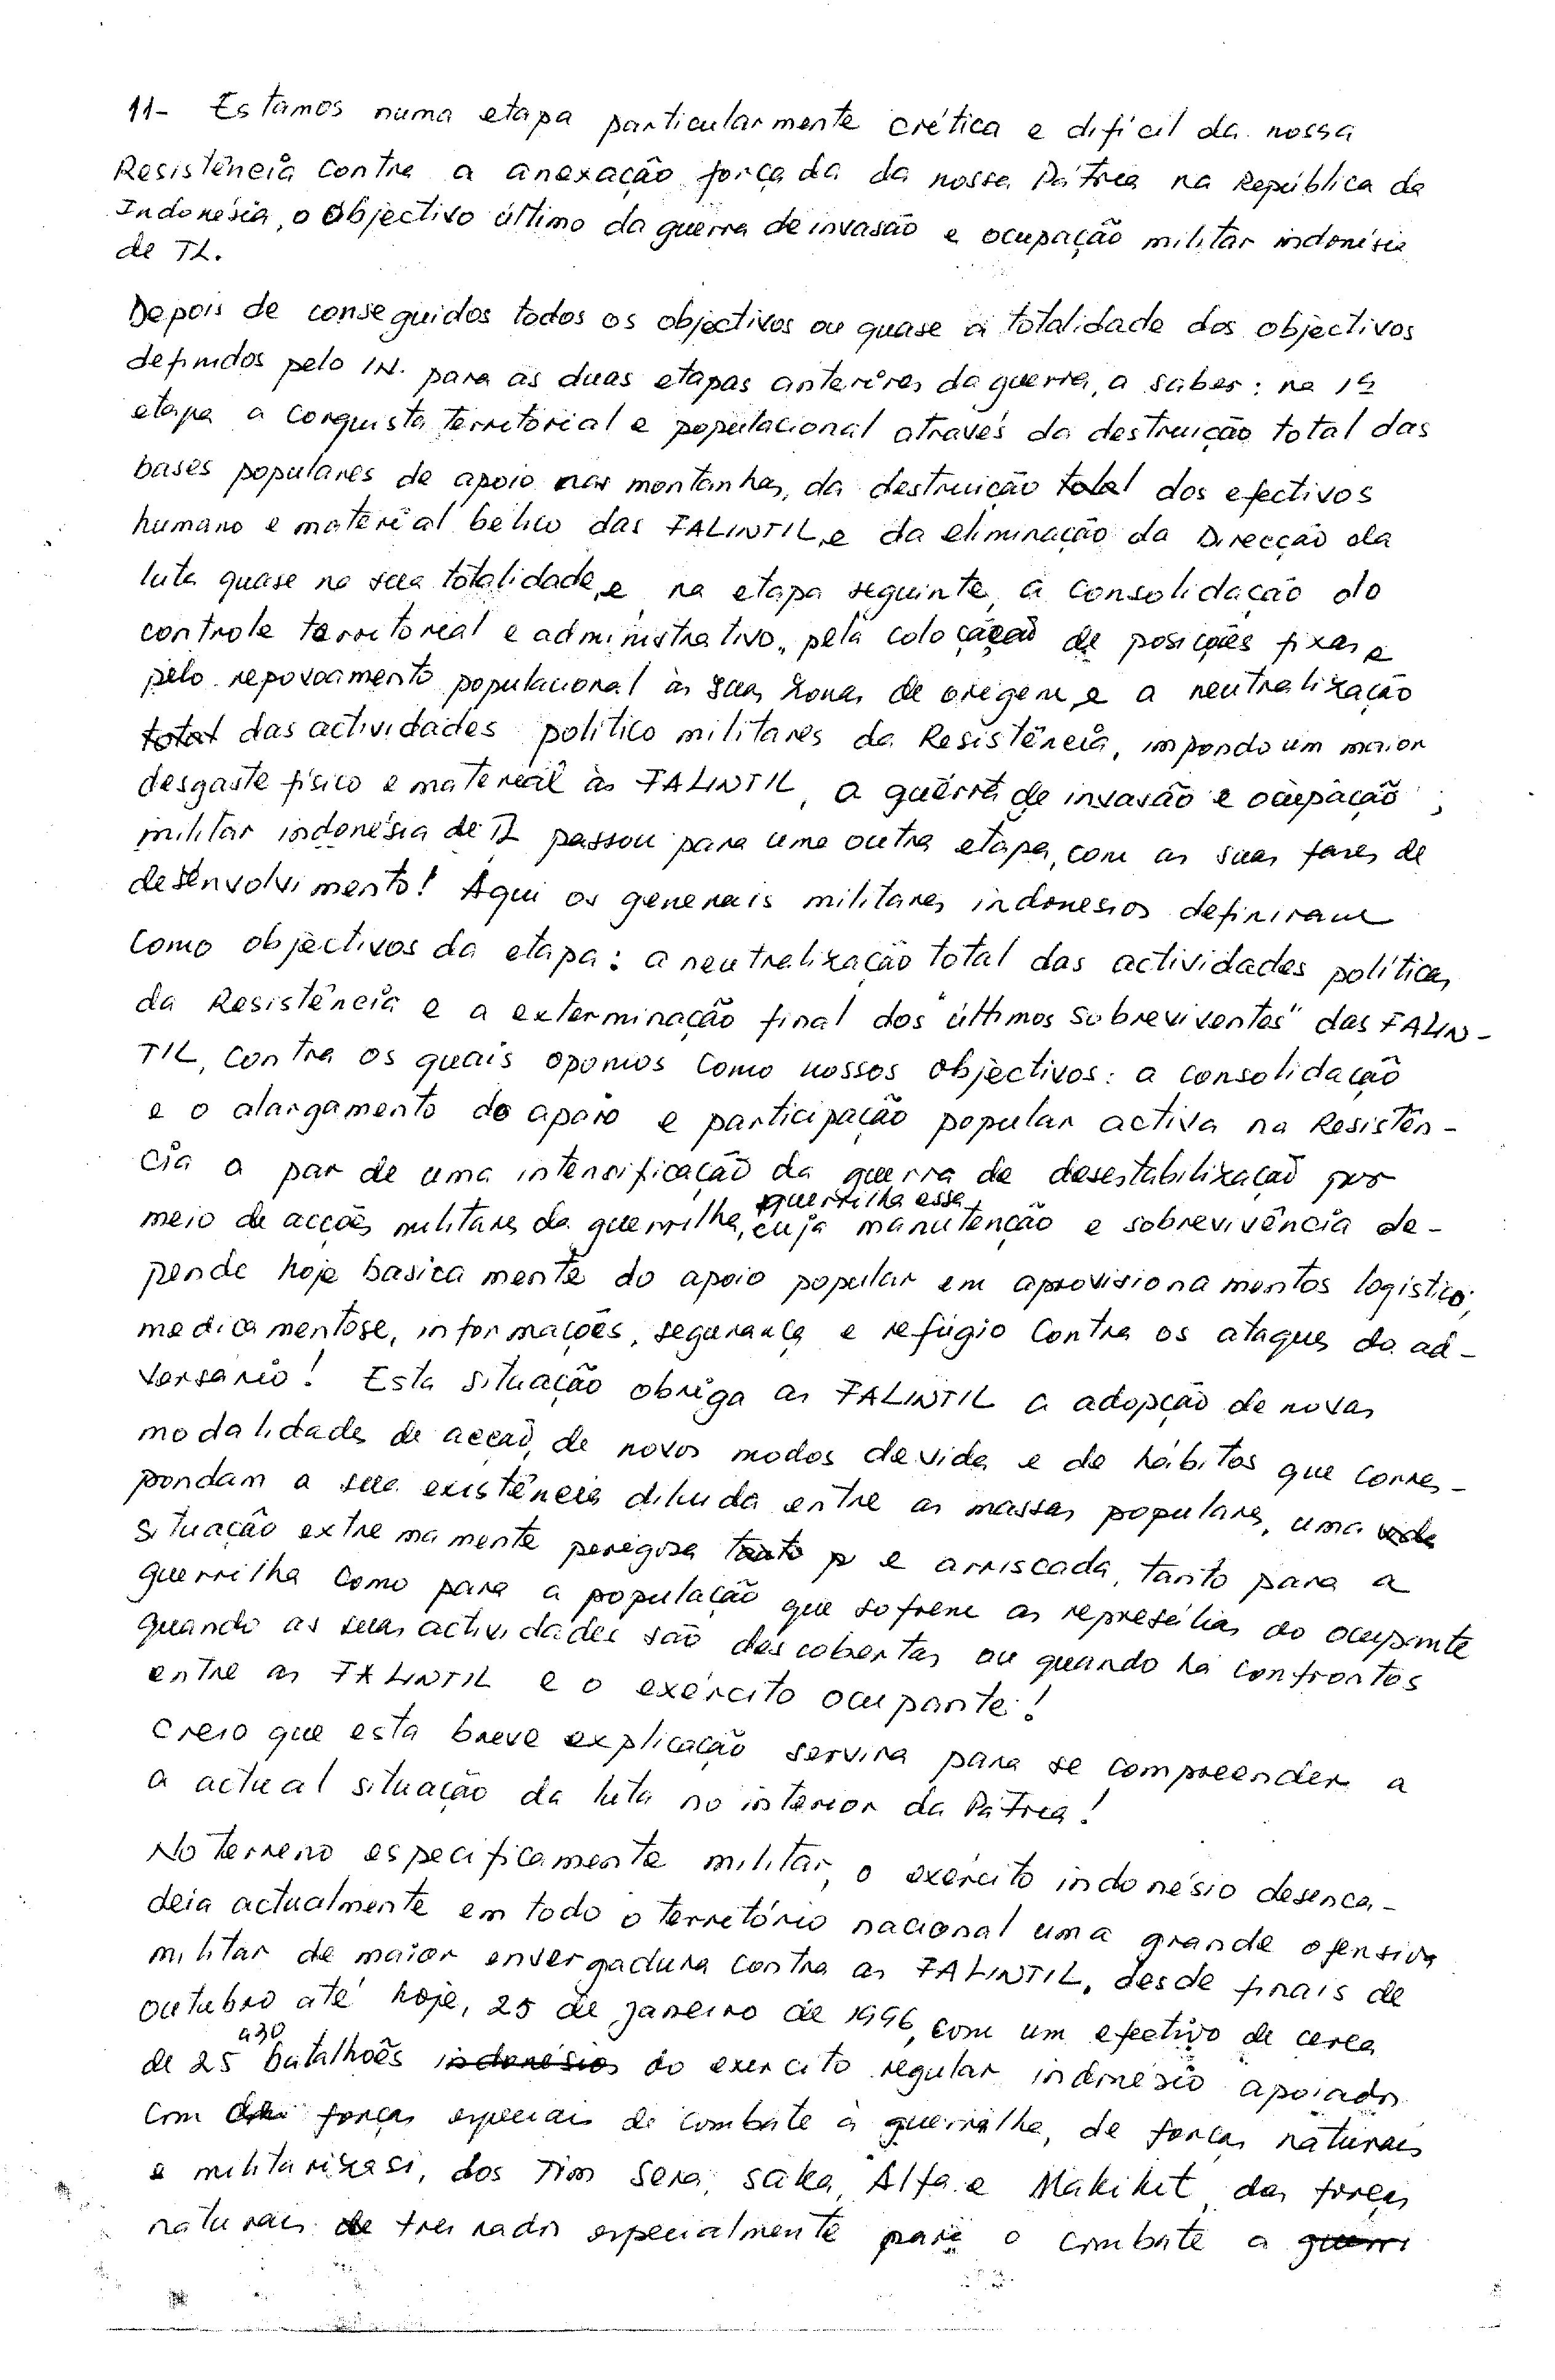 11- Estamos numa etapa particularmente crítica e difícil da nossa
Resistência contra a anexação forçada da nossa Pátria na República da
Indonésia, o objectivo último da guerra de invasão e ocupação militar indonésia
de TL.
Depois de conseguidos todos os objectivos ou quase a totalidade dos objectivos
definidos pelo IN. para as duas etapas anteriores da guerra, a saber: na 1ª
etapa a conquista territorial e populacional através da destruição total das
bases populares de apoio nas montanhas, da destruição total dos efectivos
humano e material bélico das FALINTIL, e da eliminação da Direcção da
luta quase na sua totalidade, e na etapa seguinte, a consolidação do
controle territorial e administrativo, pela colocação de posições fixas e
pelo repovoamento populacional às suas zonas de origem, e a neutralização
total das actividades político militares da Resistência, impondo um maior
desgaste físico e material às FALINTIL, a guerra de invasão e ocupação
militar indonésia de TL passou para uma outra etapa, com as suas fases de
desenvolvimento! Aqui os generais militares indonésios definiram
como objectivos da etapa: a neutralização total das actividades políticas
da Resistência e a exterminação final dos "últimos sobreviventes" das FALIN-
TIL, contra os quais opomos como nossos objectivos: a consolidação
e o alargamento do apoio e participação popular activa na Resistên-
cia a par de uma intensificação da guerra de desestabilização por
meio de acções militares da guerrilha, guerrilha essa cuja manutenção e sobrevivência de-
pende hoje basicamente do apoio popular em aprovisionamentos logístico,
medicamentose, informações, segurança e refúgio contra os ataques do ad-
versário! Esta situação obriga as FALINTIL a adopção de novas
modalidades de acção, de novos modos de vida e de hábitos que corres-
pondam a sua existência diluida entre as massas populares, uma vida
situação extremamente perigosa tanto p e arriscada, tanto para a
guerrilha como para a população que sofrem as represálias do ocupante
quando as suas actividades são descobertas ou quando há confrontos
entre as FALINTIL e o exército ocupante!
Creio que esta breve explicação servira para se compreender a
a actual situação da luta no interior da Pátria!
No terreno especificamente militar, o exército indonésio desenca-
deia actualmente em todo o território nacional uma grande ofensiva
militar de maior envergadura contra as FALINTIL, desde finais de
outubro até hoje, 25 de janeiro de 1996, com um efectivo de cerca
de 25 a 30 batalhões indonésios do exercito regular indonésio apoiados
com forças especiais de combate à guerrilha, de forças naturais
e militarizasi, dos Tim Sera, Saka, Alfa e Makikit, das forças
naturais de treinados especialmente para o combate a guerri